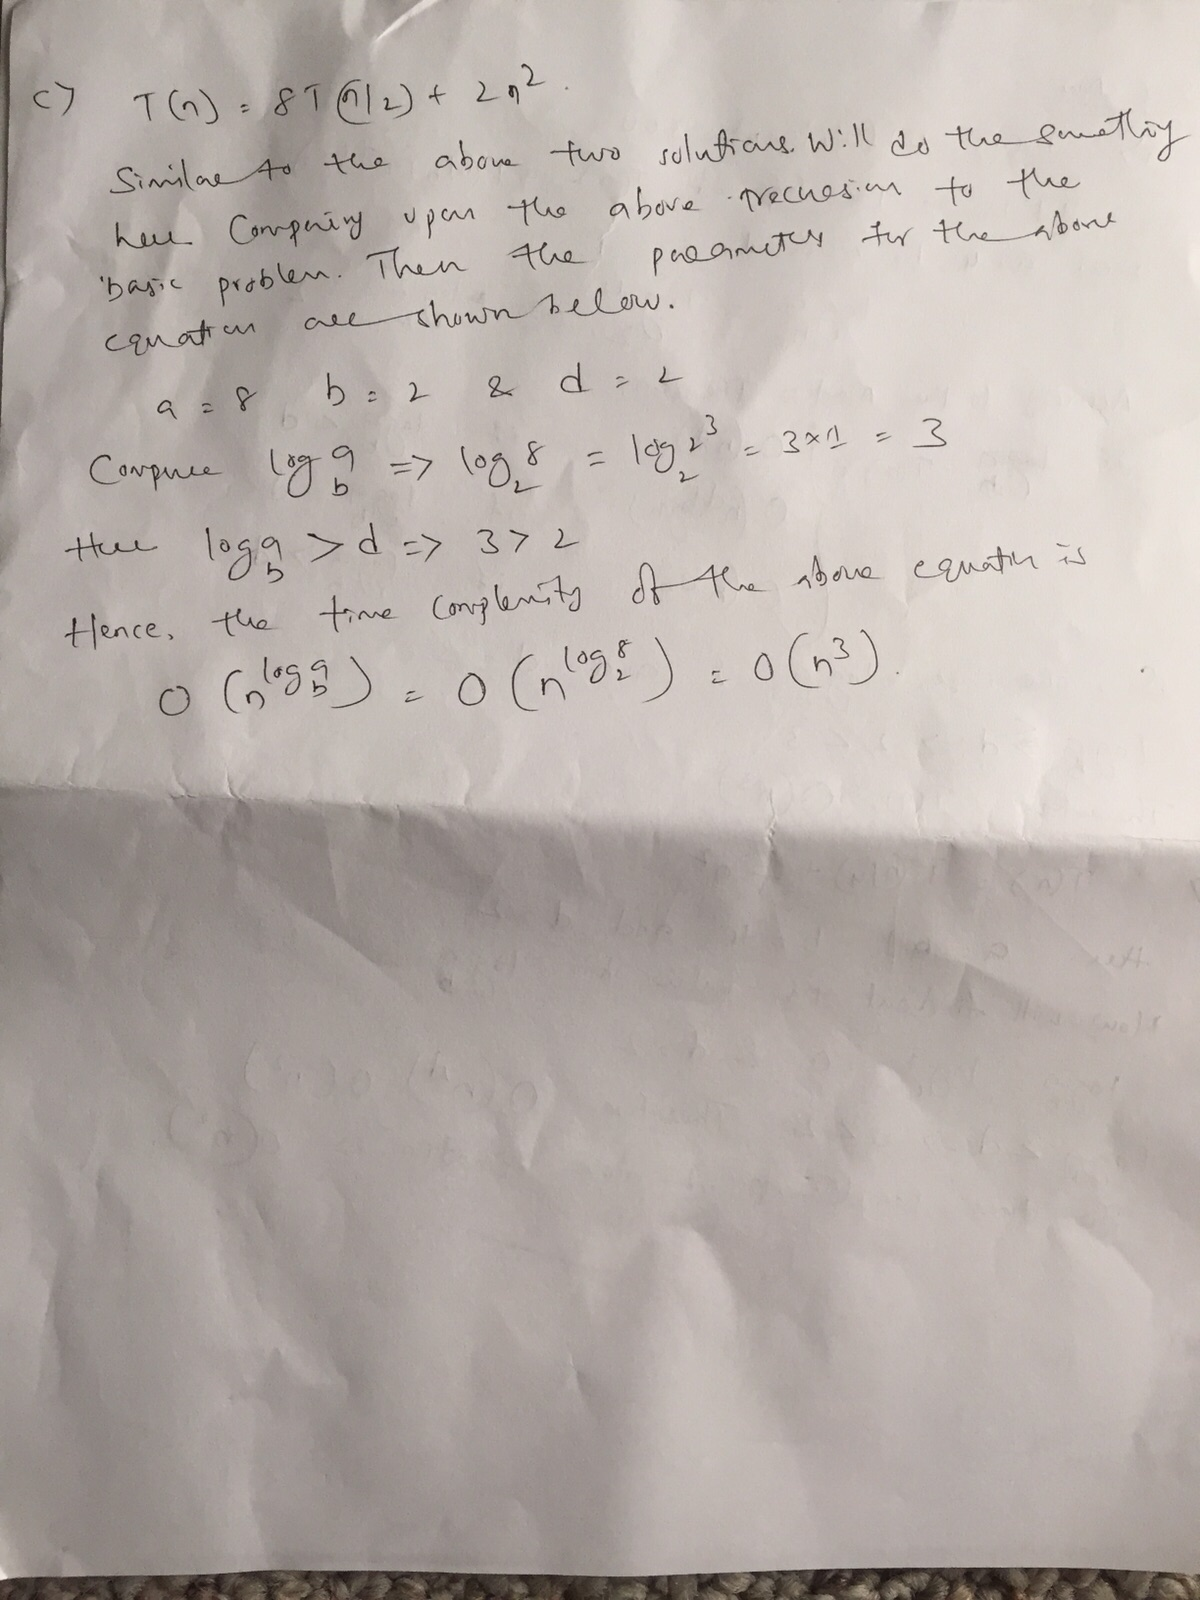 c) T(n) = 8T(n/2) + 2n².
Similar to the above two solutions. Will do the something
here Comparing upon the above recursion to the
basic problem. Then the parameters for the above
equation are shown below.
a = 8 b = 2 & d = 2
Compare log_b a => log_2 8 = log_2 2³ = 3×1 = 3
Here log_b a > d => 3 > 2
Hence, the time complexity of the above equation is
O(n^{log_b a}) = O(n^{log_2 8}) = O(n³).